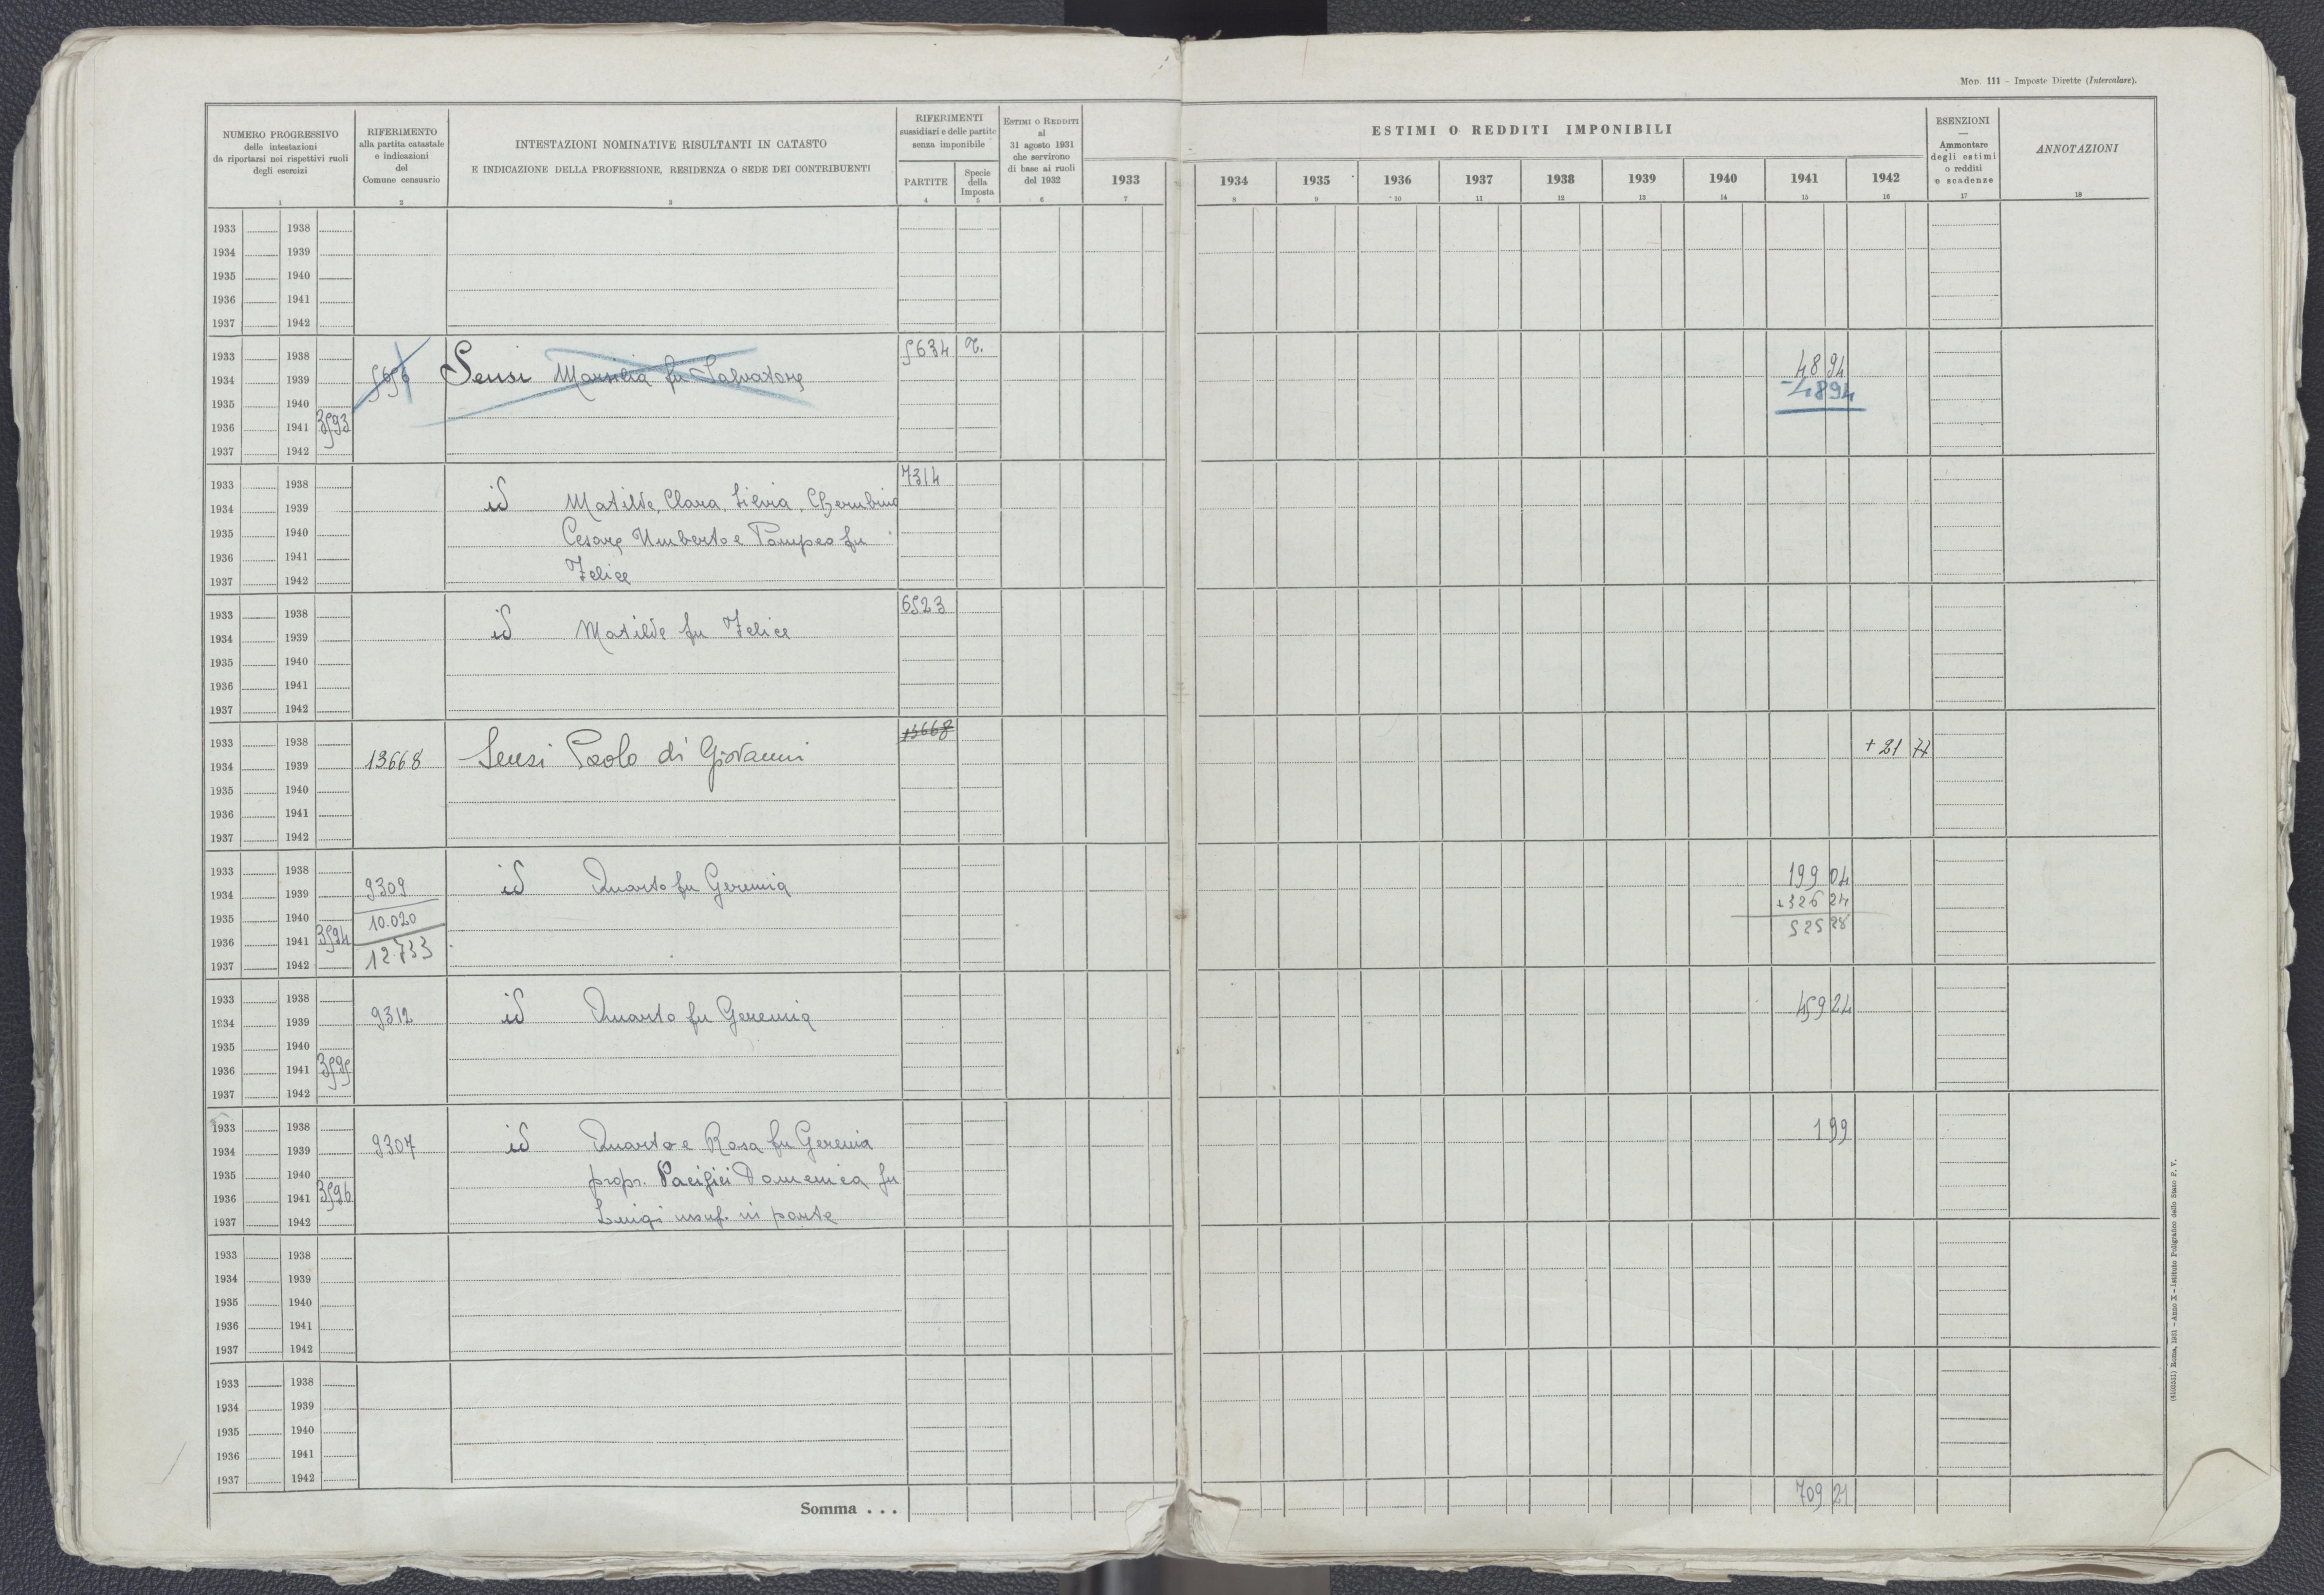 MOD. 111 - Imposte Dirette (Intercalare).
NUMERO PROGRESSIVO
delle intestazioni
da riportarsi nei rispettivi ruoli
degli esercizi
1
RIFERIMENTO
alla partita catastale
e indicazioni
del
Comune censuario
2
INTESTAZIONI NOMINATIVE RISULTANTI IN CATASTO
E INDICAZIONE DELLA PROFESSIONE, RESIDENZA O SEDE DEI CONTRIBUENTI
3
RIFERIMENTI
sussidiari e delle partite
senza imponibile
PARTITE
4
Specie
della
Imposta
5
ESTIMI O REDDITI
al
31 agosto 1931
che servirono
di base ai ruoli
del 1932
6
ESTIMI O REDDITI IMPONIBILI
1933 1934 1935 1936 1937 1938 1939 1940 1941 1942
7 8 9 10 11 12 13 14 15 16
ESENZIONI
—
Ammontare
degli estimi
o redditi
e scadenze
17
ANNOTAZIONI
18
1933 1938
1934 1939
1935 1940
1936 1941
1937 1942
1933 1938 5634 T.
1934 1939 5656 Sensi Marsilia fu Salvatore 48 94
1935 1940 - 48 94
1936 1941 3593
1937 1942
1933 1938 7314
1934 1939 id Matilde, Clara, Silvia, Cherubino
1935 1940 Cesare Umberto e Pompeo fu
1936 1941
1937 1942 Felice
1933 1938 6523
1934 1939 id Matilde fu Felice
1935 1940
1936 1941
1937 1942
1933 1938 13668 + 21 77
1934 1939 13668 Sensi Paolo di Giovanni
1935 1940
1936 1941
1937 1942
1933 1938 199 04
1934 1939 9309 id Quarto fu Geremia + 326 24
1935 1940 10.020 525 28
1936 1941 3594
1937 1942 12733
1933 1938
1934 1939 9312 id Quarto fu Geremia 459 24
1935 1940
1936 1941 3595
1937 1942
1933 1938 1 99
1934 1939 9307 id Quarto e Rosa fu Geremia
1935 1940 propr. Pacifici Domenica fu
1936 1941 3596
1937 1942 Luigi usuf. in parte
1933 1938
1934 1939
1935 1940
1936 1941
1937 1942
1933 1938
1934 1939
1935 1940
1936 1941
1937 1942
Somma . . . 709 21
Roma, 1931 - Anno X - Istituto Poligrafico dello Stato P. V.